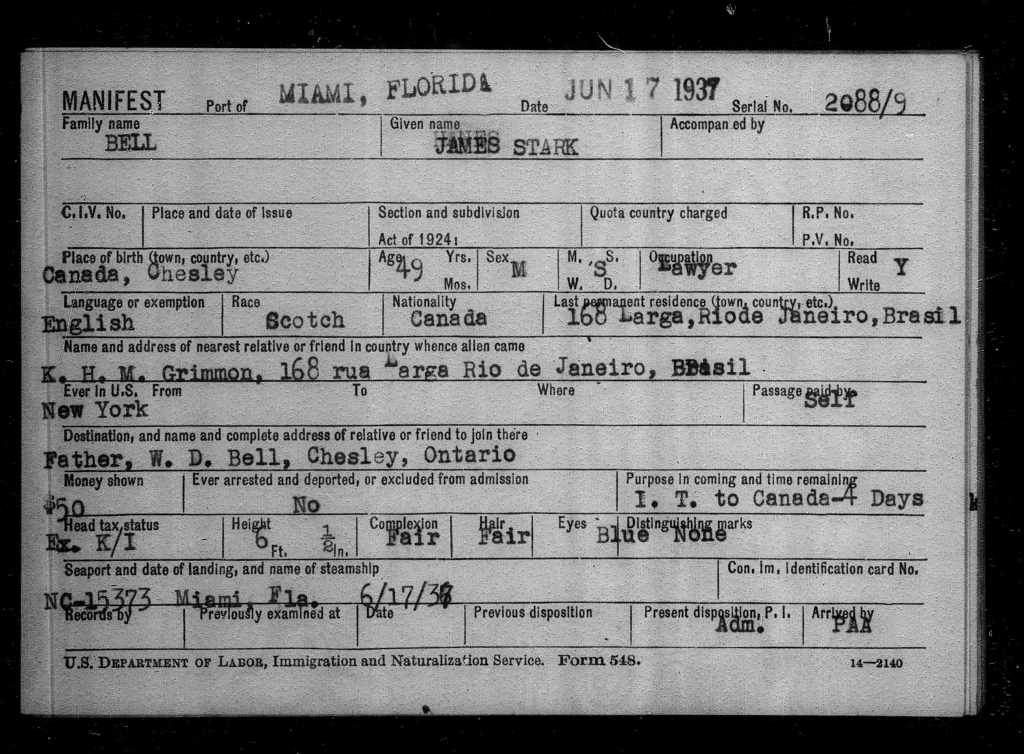 MANIFEST Port of MIAMI, FLORIDA Date JUN 17 1937 Serial No. 2088/9
Family name Given name Accompan ed by
BELL JAMES STARK
C.I.V. No. Place and date of issue Section and subdivision Quota country charged R.P. No.
Act of 1924: P.V. No.
Place of birth (town, country, etc.) Age Yrs. Sex M. S. Occupation Read
Canada, Chesley 49 M S Lawyer Y
Mos. W. D. Write
Language or exemption Race Nationality Last permanent residence (town, country, etc.)
English Scotch Canada 168 Larga,Riode Janeiro,Brasil
Name and address of nearest relative or friend in country whence alien came
K. H. M. Grimmon, 168 rua Larga Rio de Janeiro, Brasil
Ever in U.S. From To Where Passage paid by
New York Self
Destination, and name and complete address of relative or friend to join there
Father, W. D. Bell, Chesley, Ontario
Money shown Ever arrested and deported, or excluded from admission Purpose in coming and time remaining
$50 No I. T. to Canada-4 Days
Head tax status Height Complexion Hair Eyes Distinguishing marks
Ex. K/I 6 Ft. ½ In. Fair Fair Blue None
Seaport and date of landing, and name of steamship Con. Im. Identification card No.
NC-15373 Miami, Fla. 6/17/37
Records by Previously examined at Date Previous disposition Present disposition, P. I. Arrived by
Adm. PAA
U.S. DEPARTMENT OF LABOR, Immigration and Naturalization Service. Form 548. 14—2140